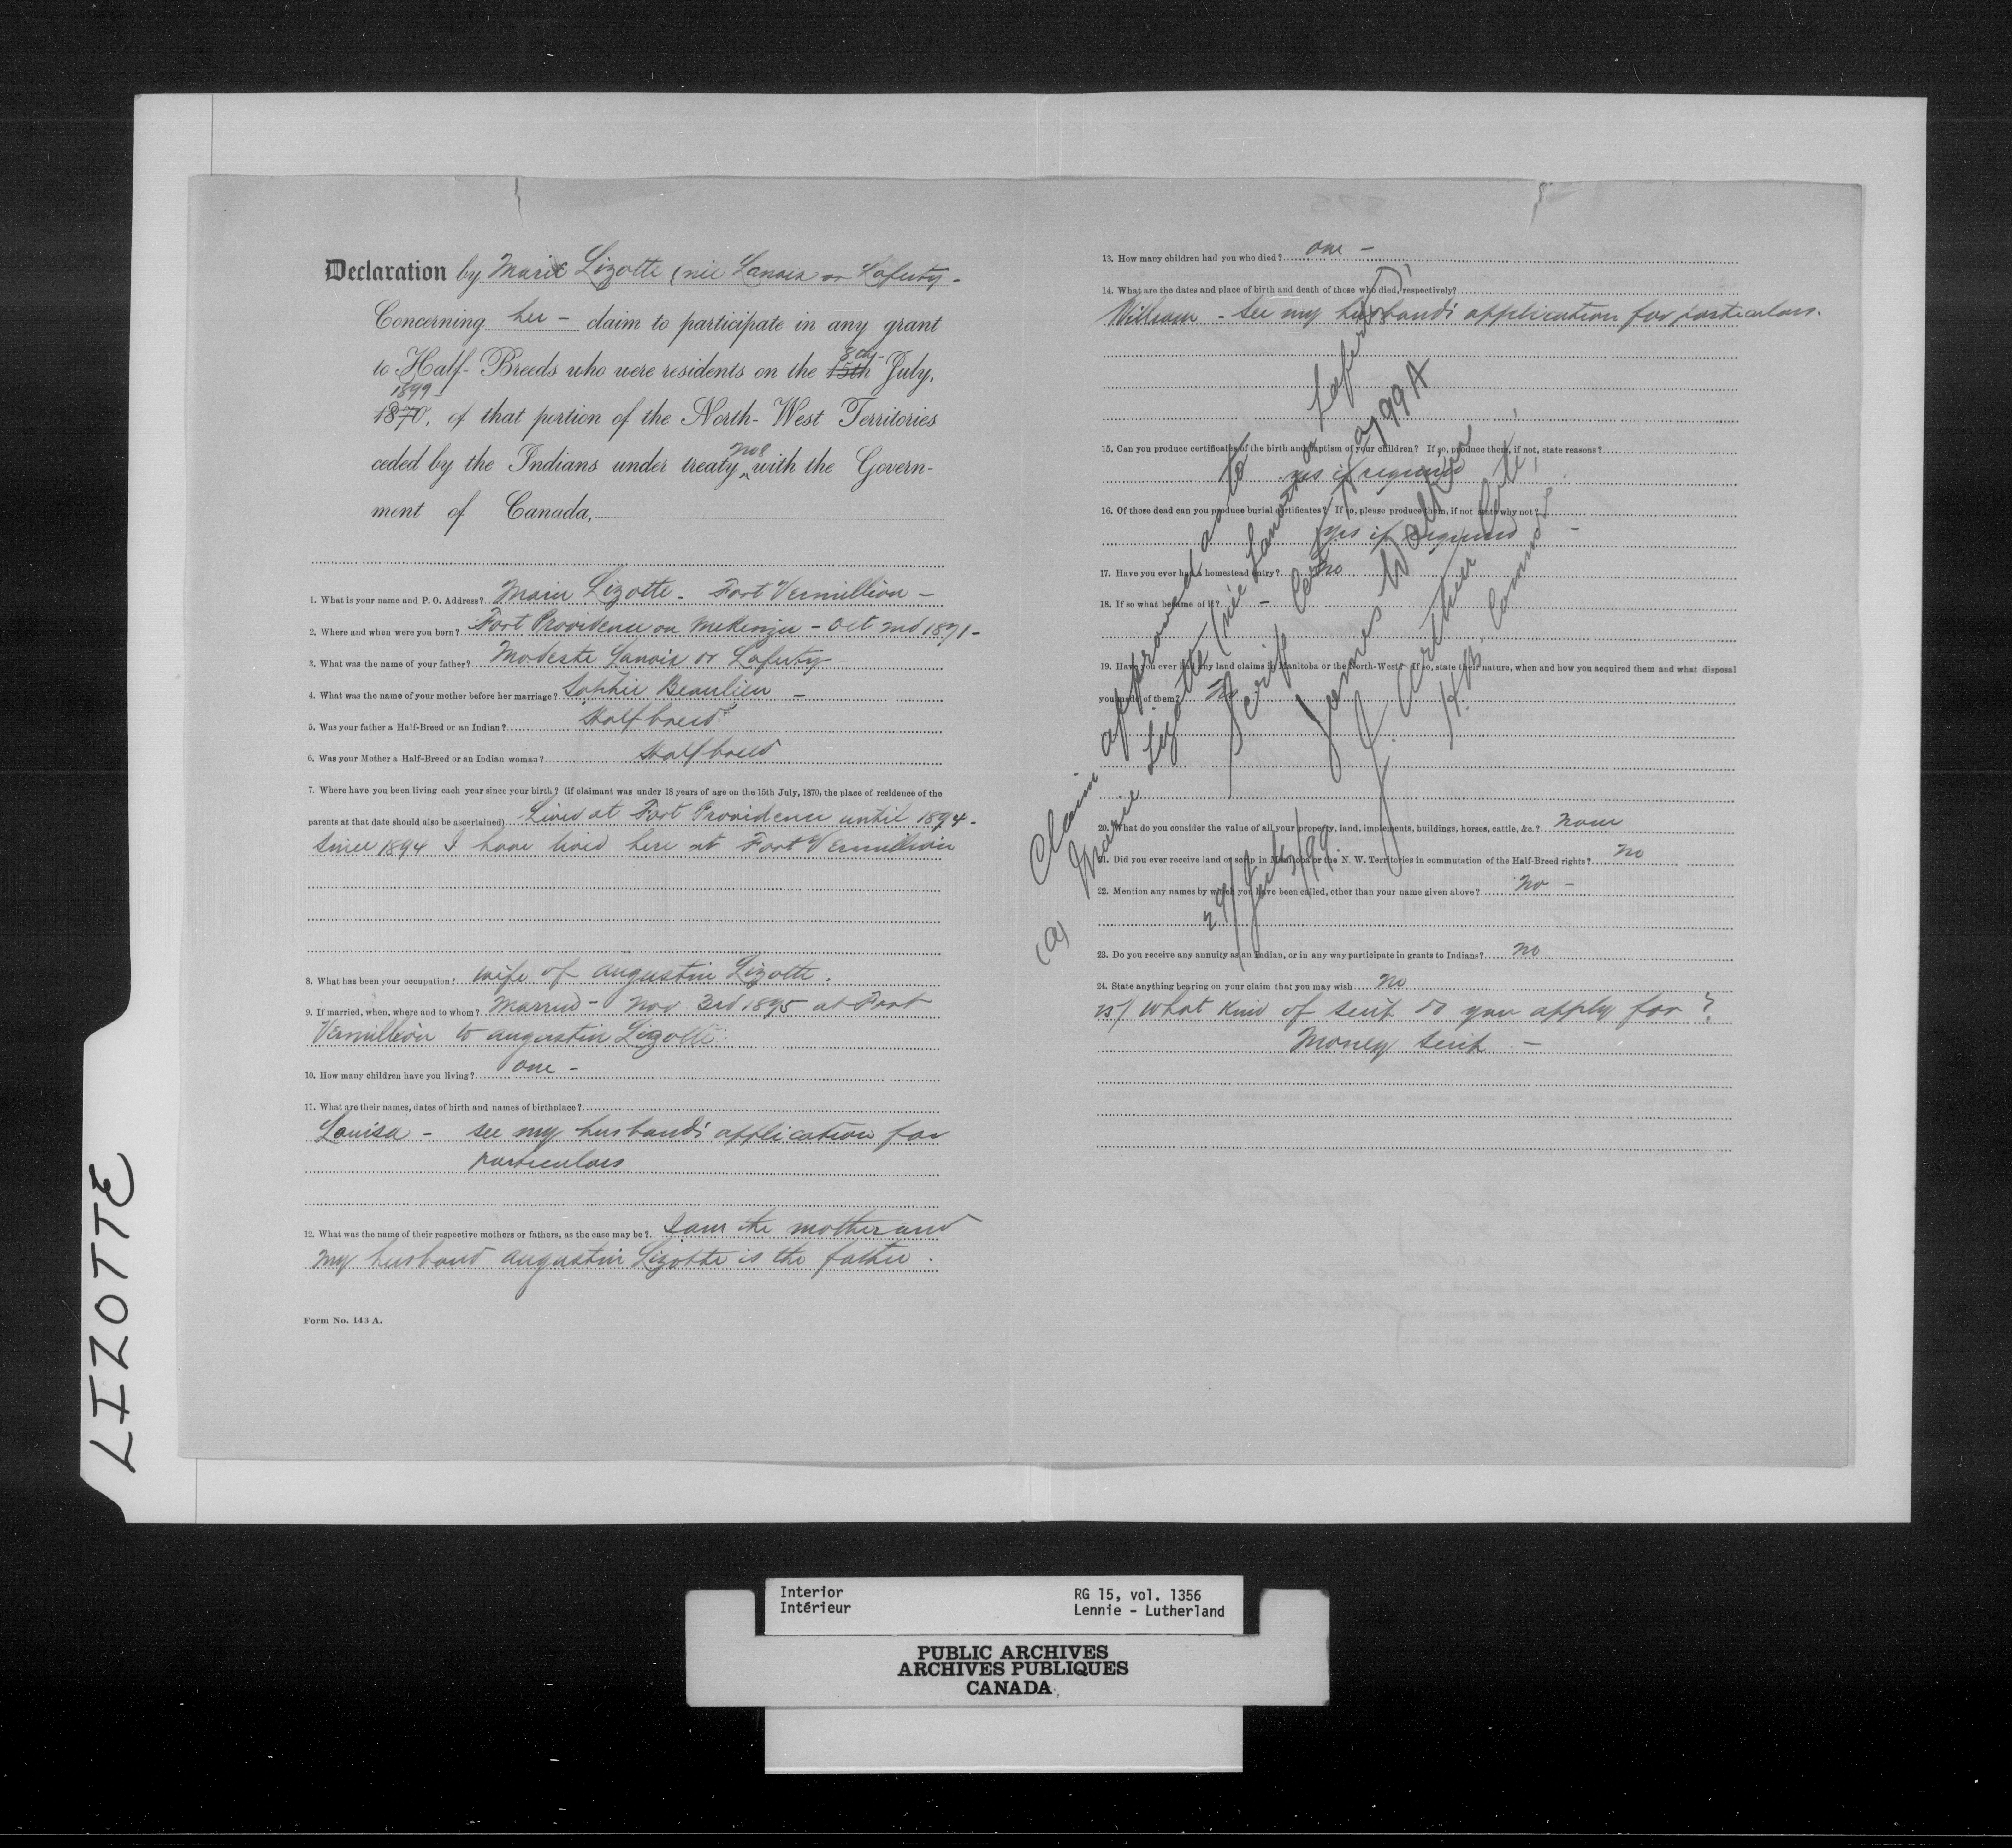 Declaration by Marie Lizotte (née Lanoix or Laferty -
Concerning her - claim to participate in any grant
to Half-Breeds who were residents on the 15th 8th July,
1870, 1899 of that portion of the North-West Territories
ceded by the Indians under treaty No 8 with the Govern-
ment of Canada,
1. What is your name and P. O. Address? Marie Lizotte - Fort Vermillion -
2. Where and when were you born? Fort Providence on McKenzie - Oct 2nd 1871 -
3. What was the name of your father? Modeste Lanoix or Laferty
4. What was the name of your mother before her marriage? Sophie Beaulieu -
5. Was your father a Half-Breed or an Indian? Half breed
6. Was your Mother a Half-Breed or an Indian woman? Half breed
7. Where have you been living each year since your birth? (if claimant was under 18 years of age on the 15th July, 1870, the place of residence of the
parents at that date should also be ascertained) Lived at Fort Providence until 1894 -
Since 1894 I have lived here at Fort Vermillion
8. What has been your occupation? wife of Augustin Lizotte.
9. If married, when, where and to whom? Married - Nov 3rd 1895 at Fort
Vermillion to Augustin Lizotte
10. How many children have you living? one -
11. What are their names, dates of birth and names of birthplace?
Louisa - see my husband's application for
particulars
12. What was the name of their respective mothers or fathers, as the case may be? I am the mother and
my husband Augustin Lizotte is the father.
Form No. 143 A.
13. How many children had you who died? one -
14. What are the dates and place of birth and death of those who died, respectively?
William - See my husband's application for particulars.
15. Can you produce certificates of the birth and baptism of your children? If so, produce them, if not, state reasons?
yes if required
16. Of those dead can you produce burial certificates? If so, please produce them, if not state why not?
yes if required -
17. Have you ever had a homestead entry? No
18. If so what became of it? -
19. Have you ever had any land claims in Manitoba or the North-West? If so, state their nature, when and how you acquired them and what disposal
you made of them? No
20. What do you consider the value of all your property, land, implements, buildings, horses, cattle, &c.? None
21. Did you ever receive land or scrip in Manitoba or the N. W. Territories in commutation of the Half-Breed rights? No
22. Mention any names by which you have been called, other than your name given above? No -
23. Do you receive any annuity as an Indian, or in any way participate in grants to Indians? No
24. State anything bearing on your claim that you may wish No
25/ What kind of scrip do you apply for?
Money Scrip -
Claim approved as to
(a) Marie Lizotte (née Lanoix or Laferty),
Scrip Cert. 799 A
James Walker
J. Arthur Coté,
H.B. Comm'rs
29/July/99.
LIZOTTE
Interior
Intérieur
RG 15, vol. 1356
Lennie - Lutherland
PUBLIC ARCHIVES
ARCHIVES PUBLIQUES
CANADA